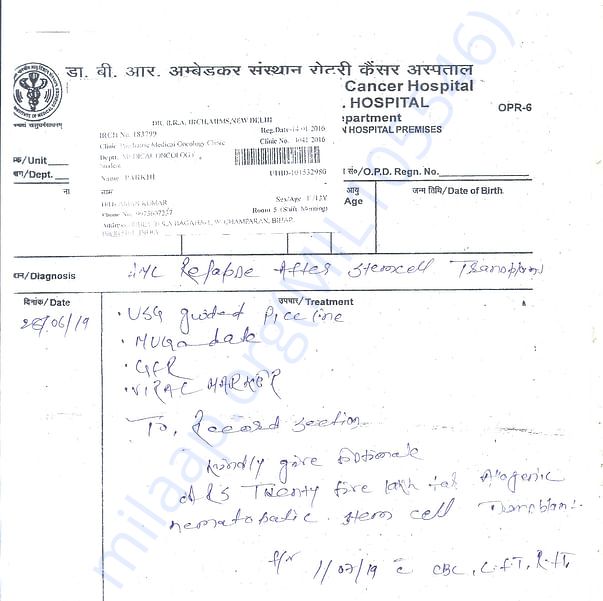 डा. बी. आर. अम्बेडकर संस्थान रोटरी कैंसर अस्पताल
Cancer Hospital
HOSPITAL
OPR-6
partment
HOSPITAL PREMISES
DR. B.R.A. IRCH, AIIMS, NEW DELHI
IRCH No. 183799
Reg.Date-14/01/2016
Clinic Medical Oncology Clinic
Clinic No.
Deptt. MEDICAL ONCOLOGY
क/Unit
UHID-101532980
ग/Dept.
Name PARKHI
सं०/O.P.D. Regn. No.
ना
KUMAR
Sex/Age
आयु
Age
जन्म तिथि/Date of Birth
Phone No.
Room 5 (Shift Morning)
Address
W. CHAMPARAN, BIHAR,
INDIA
/Diagnosis
Relapse After stemcell Transplant
दिनांक/Date
उपचार/Treatment
/06/19
• USG guided Picc line
• MUGA
• GFR
• VIRAL MARKER
To, Record section
Kindly give
Twenty five lakh for Allogenic
stem cell Transplant
1/07/19 c CBC, LFT, RFT
milaap.org(MIL105546)